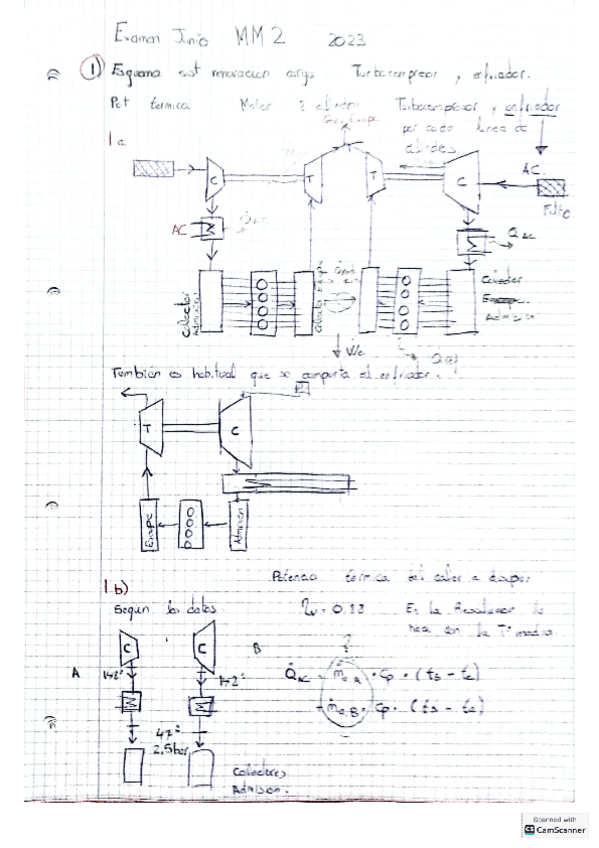 Examen Junio MM2 2023
1) Esquema sist renovacion carga Turbocompresor y enfriador.
Pot termica Motor 8 cilindros Turbocompresor y enfriador
por cada linea de
cilindros
1a.
Gases Escape
AC.
C T T C
Filtro
AC
Q AC
Colector
Admisión
Colector
Colector
Admision
We
También es habitual que se comparta el enfriador.
T C
Escape
Admision
1b)
Potencia termica del calor a disipar
Segun los datos
ηv = 0.88
En la Resolucion lo
hace con la Tª media
C C
A B
?
148º 142º
Q̇AC = ṁa,A · cp · (ts - te)
+ ṁa,B · cp · (ts - te)
47º
2,5bar
Colectores
Admision.
Scanned with
CS CamScanner